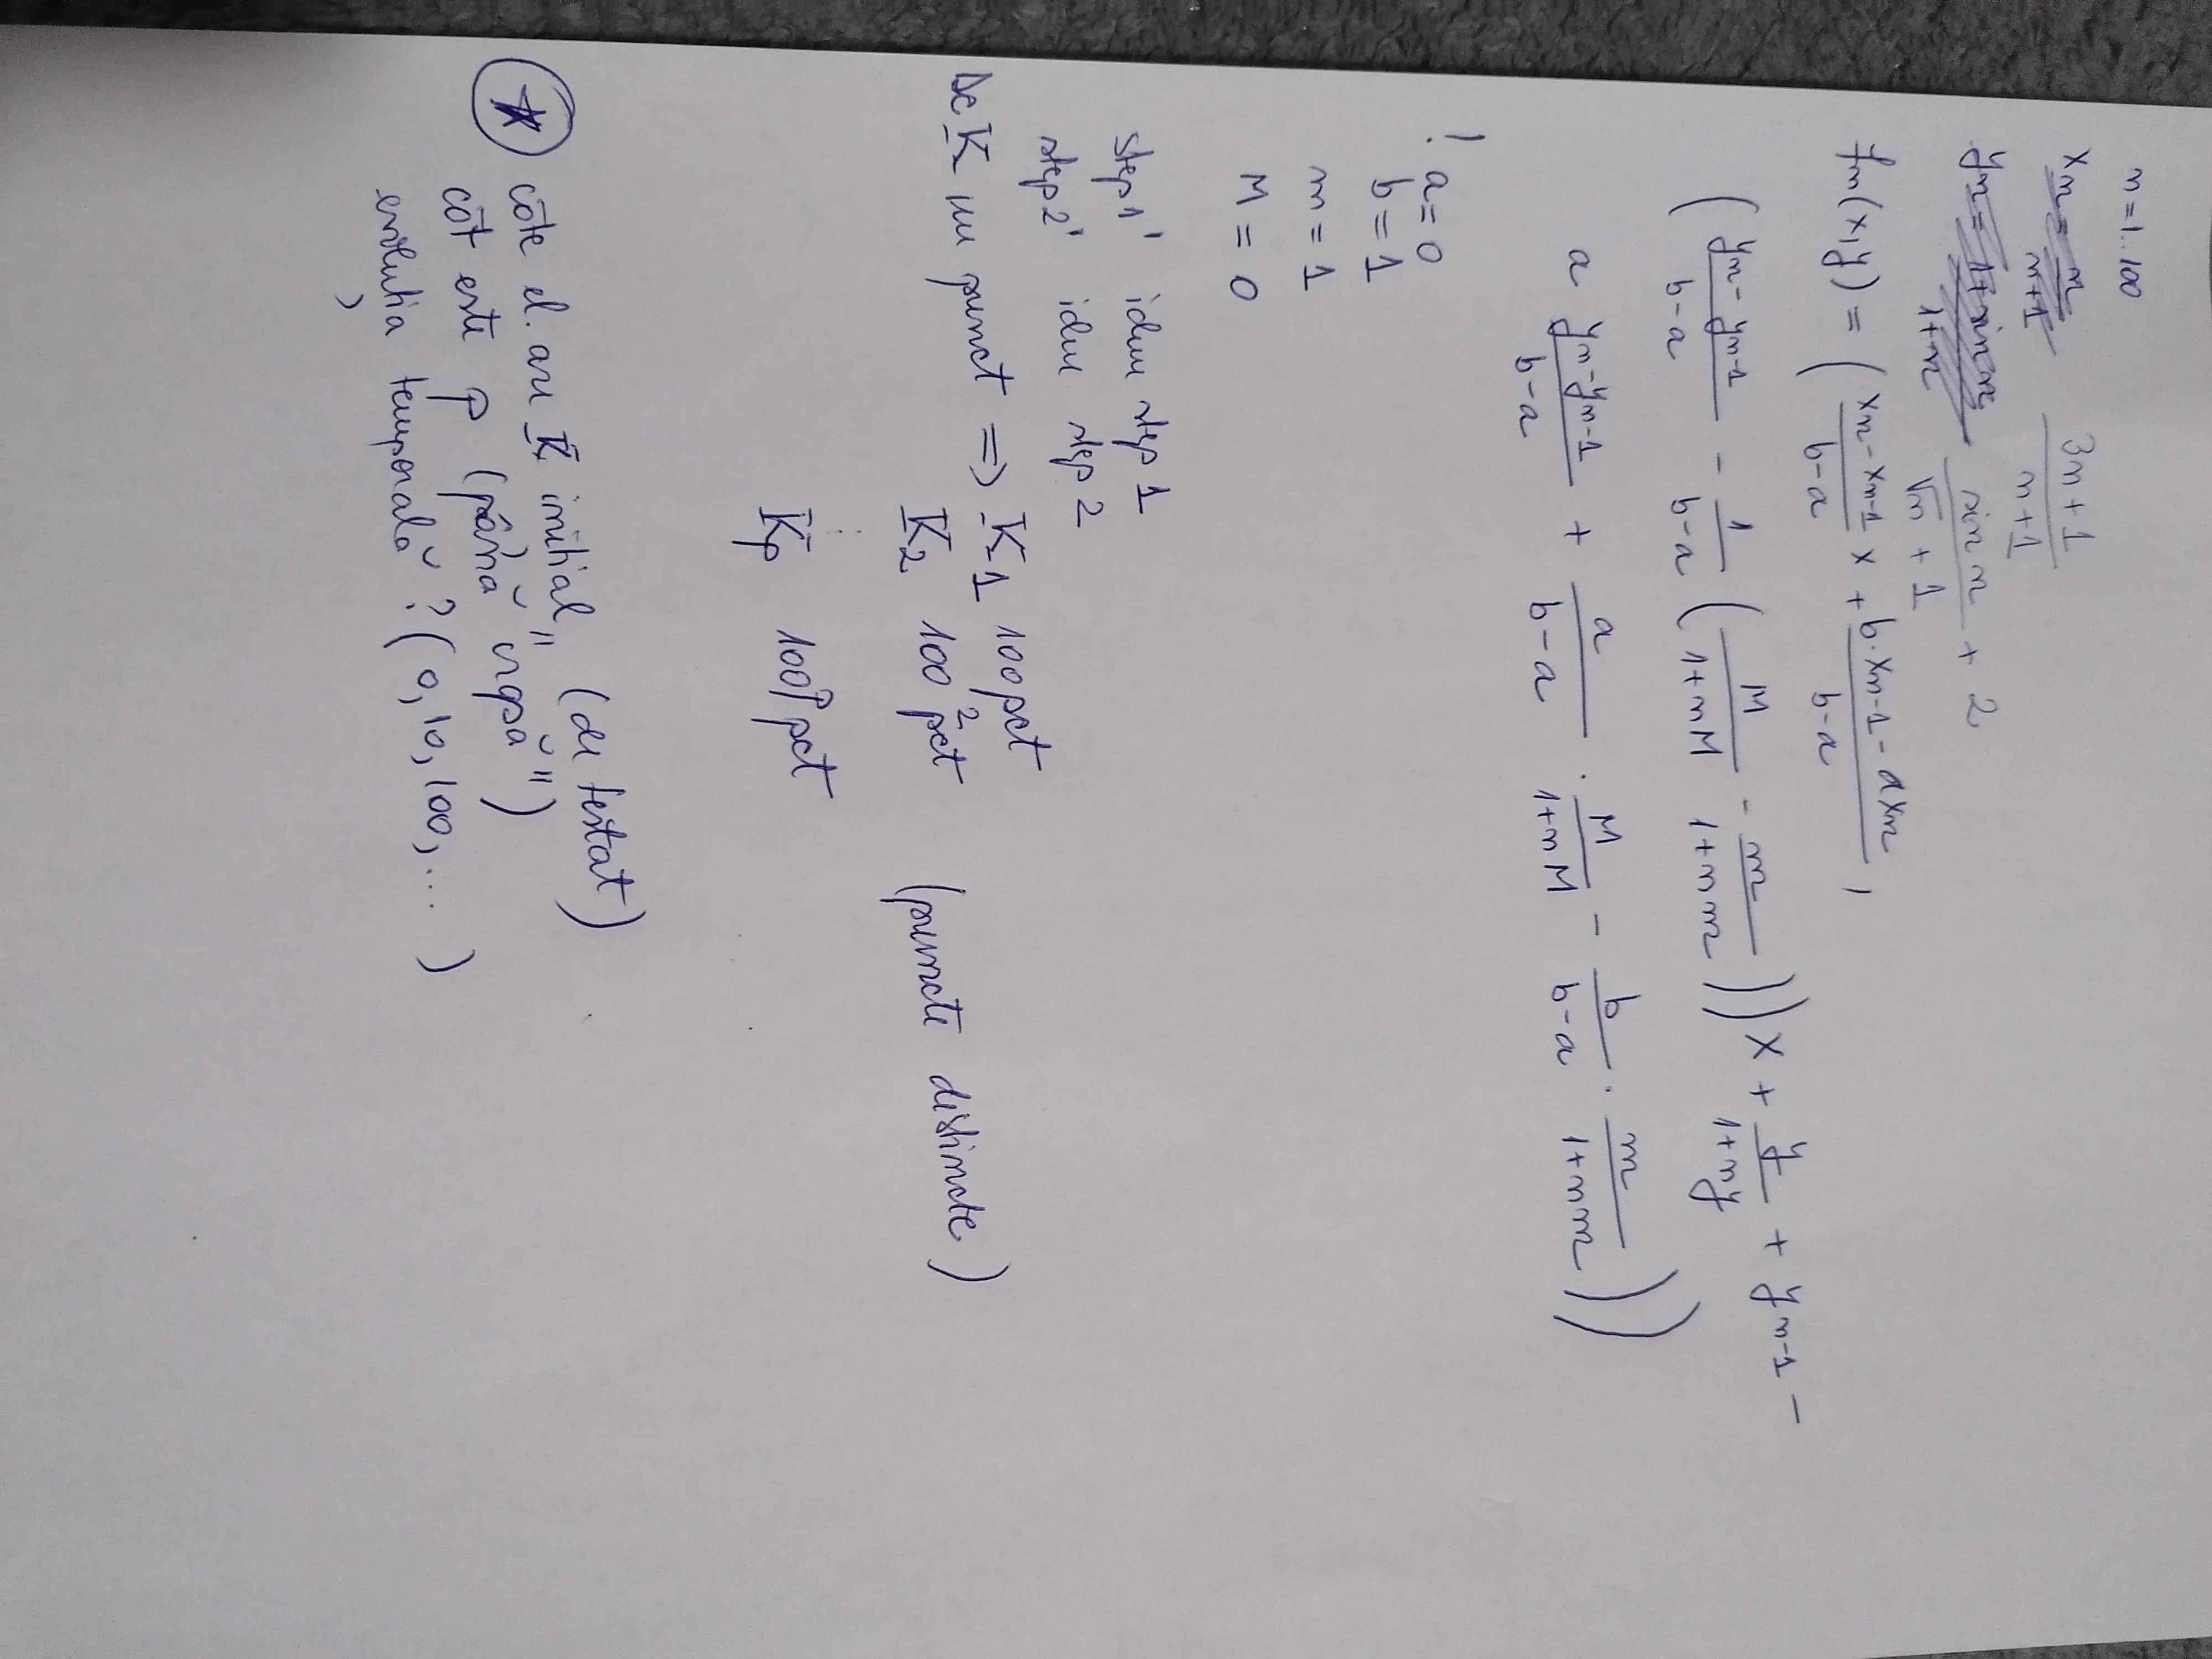 n = 1..100
xn = n/(n+1) (3n+1)/(n+1)
yn = (1+sin n)/(1+n) sin n/(√n + 1) + 2
fn(x,y) = ( (xn - xn-1)/(b-a) x + (b·xn-1 - a xn)/(b-a) ,
( (yn - yn-1)/(b-a) - 1/(b-a) ( M/(1+nM) - m/(1+nm) )) x + y/(1+ny) + yn-1 -
a (yn-yn-1)/(b-a) + a/(b-a) · M/(1+nM) - b/(b-a) · m/(1+nm) ))
! a = 0
b = 1
m = 1
M = 0
step1' idem step 1
step2' idem step 2
Dc K un punct => K1 100 pct
K2 100² pct (puncte distincte)
⋮
Kp 100^p pct
* câte el. are K inițial (de testat)
cât este p (până "crapă")
evoluția temporală ? (0, 10, 100, ... )